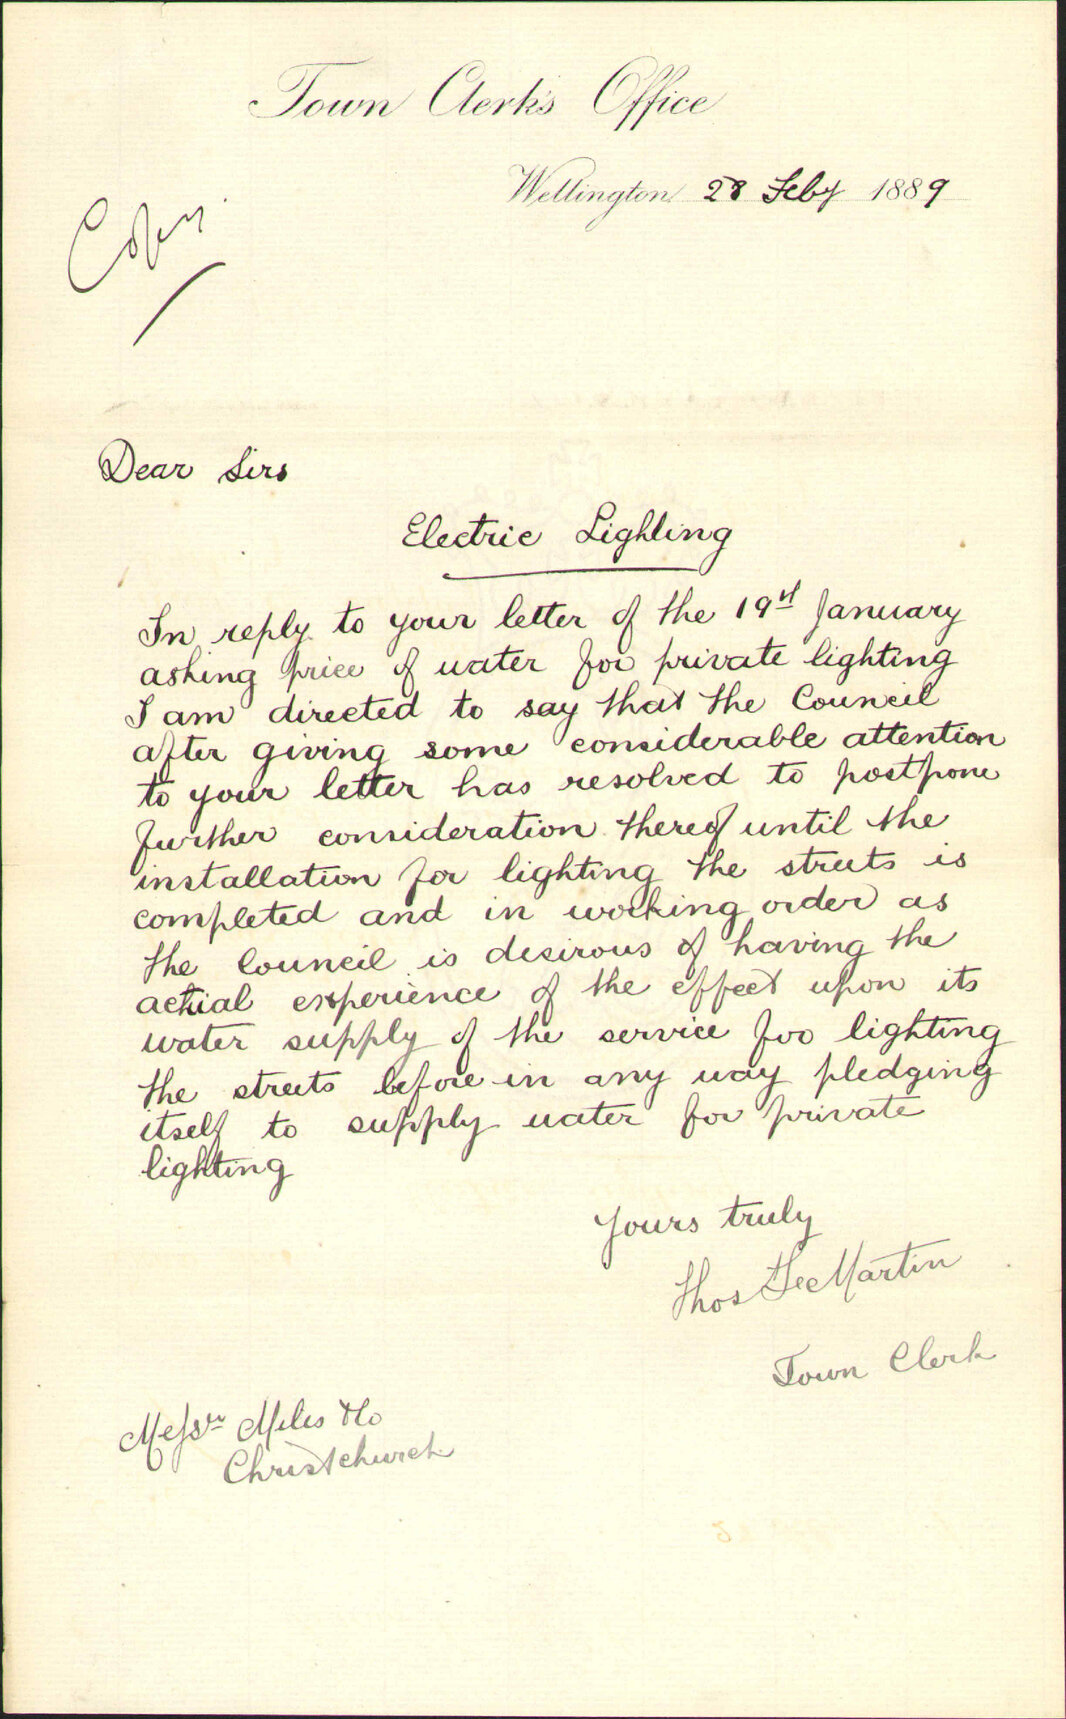 Town Clerk's Office
Wellington 28 Feby 1889
Copy.
Dear Sirs
Electric Lighting
In reply to your letter of the 19th January
asking price of water for private lighting
I am directed to say that the Council
after giving some considerable attention
to your letter has resolved to postpone
further consideration thereof until the
installation for lighting the streets is
completed and in working order as
the Council is desirous of having the
actual experience of the effect upon its
water supply of the service for lighting
the streets before in any way pledging
itself to supply water for private
lighting
Yours truly
Thos Fec Martin
Town Clerk
Messrs Miles & Co
Christchurch